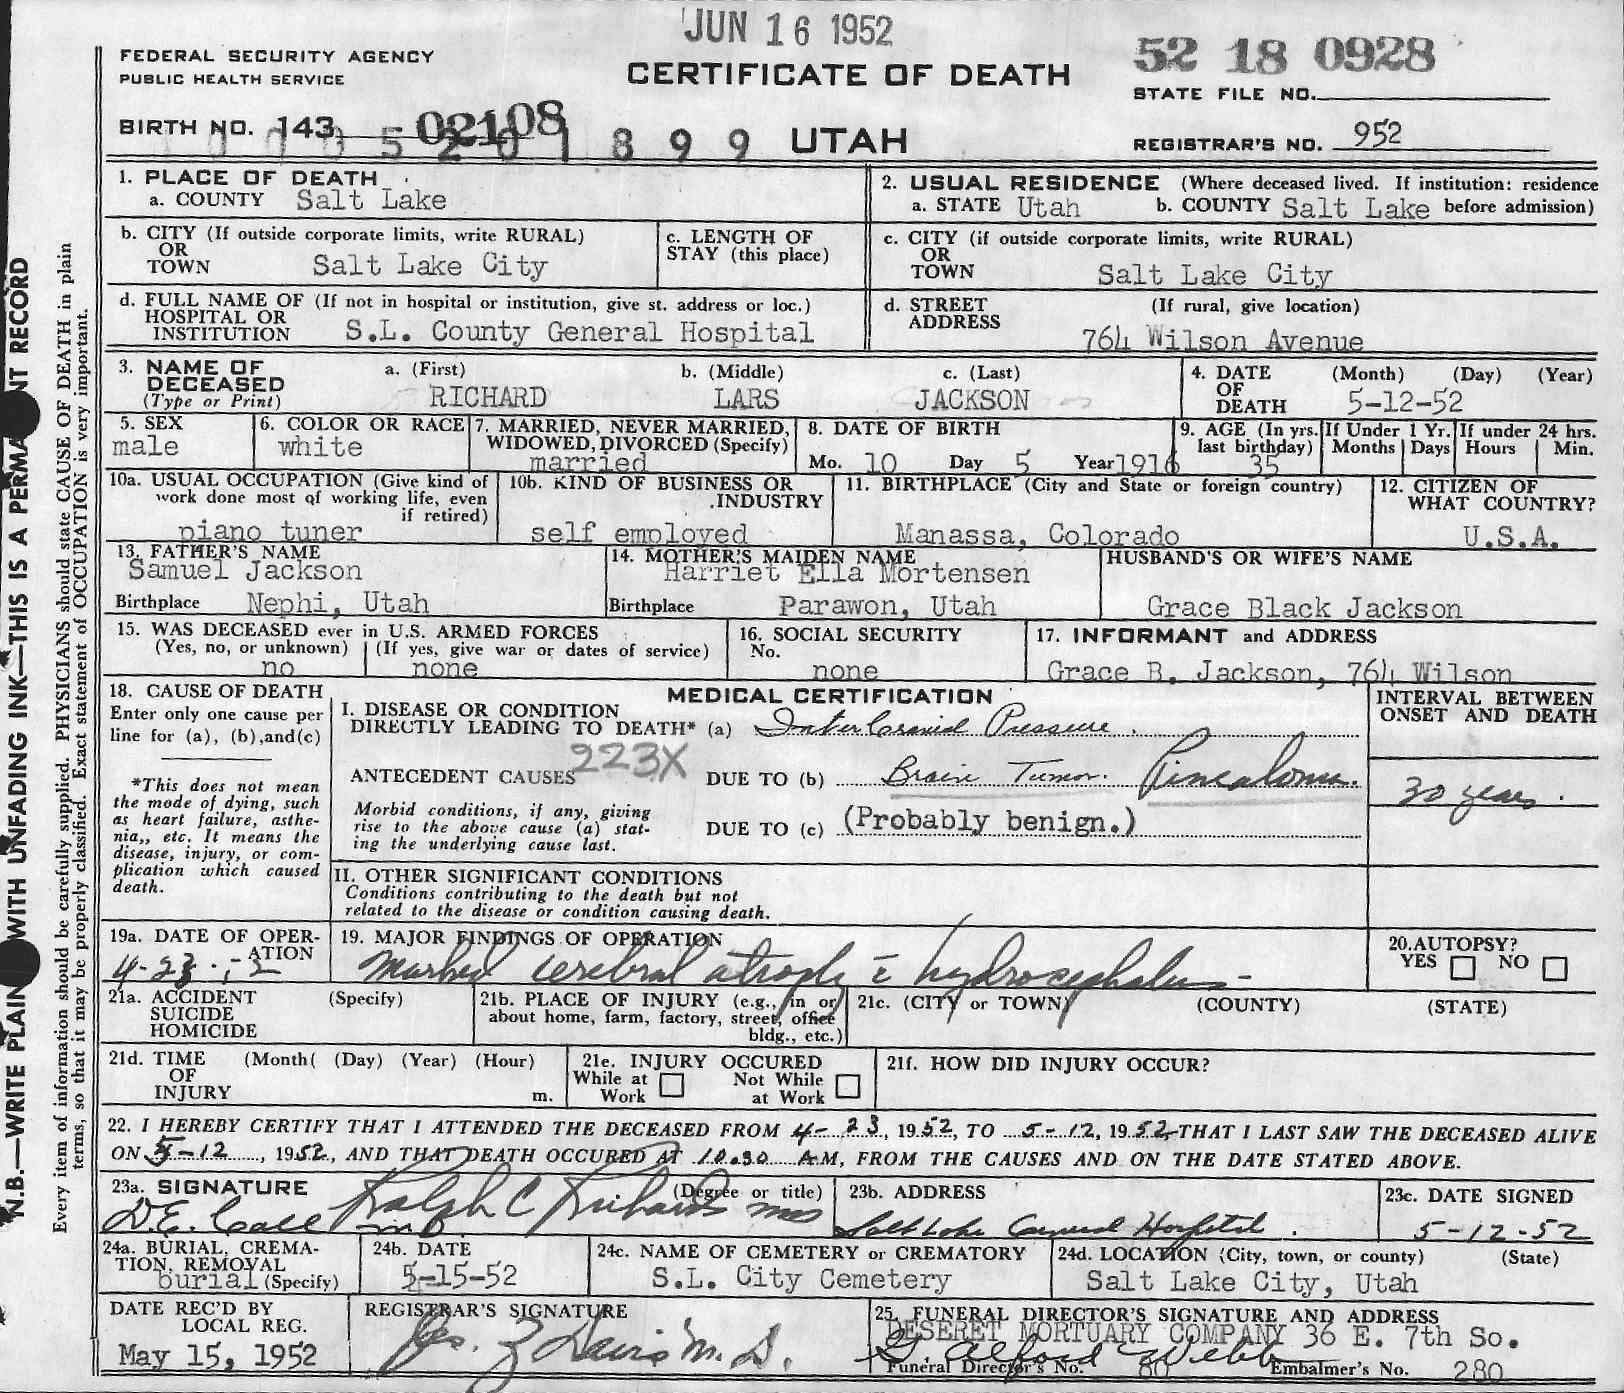 JUN 16 1952
FEDERAL SECURITY AGENCY
PUBLIC HEALTH SERVICE
CERTIFICATE OF DEATH
52 18 0928
STATE FILE NO.
BIRTH NO. 143 02108
899 UTAH
REGISTRAR'S NO. 952
1. PLACE OF DEATH
a. COUNTY Salt Lake
2. USUAL RESIDENCE (Where deceased lived. If institution: residence
a. STATE Utah b. COUNTY Salt Lake before admission)
b. CITY (If outside corporate limits, write RURAL)
OR
TOWN Salt Lake City
c. LENGTH OF
STAY (this place)
c. CITY (if outside corporate limits, write RURAL)
OR
TOWN Salt Lake City
d. FULL NAME OF (If not in hospital or institution, give st. address or loc.)
HOSPITAL OR
INSTITUTION S.L. County General Hospital
d. STREET (If rural, give location)
ADDRESS
764 Wilson Avenue
3. NAME OF a. (First) b. (Middle) c. (Last)
DECEASED
(Type or Print) RICHARD LARS JACKSON
4. DATE (Month) (Day) (Year)
OF
DEATH 5-12-52
5. SEX
male
6. COLOR OR RACE
white
7. MARRIED, NEVER MARRIED,
WIDOWED, DIVORCED (Specify)
married
8. DATE OF BIRTH
Mo. 10 Day 5 Year 1916
9. AGE (In yrs.
last birthday)
35
If Under 1 Yr.
Months Days
If under 24 hrs.
Hours Min.
10a. USUAL OCCUPATION (Give kind of
work done most of working life, even
if retired)
piano tuner
10b. KIND OF BUSINESS OR
INDUSTRY
self employed
11. BIRTHPLACE (City and State or foreign country)
Manassa, Colorado
12. CITIZEN OF
WHAT COUNTRY?
U.S.A.
13. FATHER'S NAME
Samuel Jackson
Birthplace Nephi, Utah
14. MOTHER'S MAIDEN NAME
Harriet Ella Mortensen
Birthplace Parawon, Utah
HUSBAND'S OR WIFE'S NAME
Grace Black Jackson
15. WAS DECEASED ever in U.S. ARMED FORCES
(Yes, no, or unknown) (If yes, give war or dates of service)
no none
16. SOCIAL SECURITY
No.
none
17. INFORMANT and ADDRESS
Grace B. Jackson, 764 Wilson
18. CAUSE OF DEATH
Enter only one cause per
line for (a), (b),and(c)
*This does not mean
the mode of dying, such
as heart failure, asthe-
nia,, etc. It means the
disease, injury, or com-
plication which caused
death.
MEDICAL CERTIFICATION
I. DISEASE OR CONDITION
DIRECTLY LEADING TO DEATH* (a) Inter Cranial Pressure.
223X
ANTECEDENT CAUSES DUE TO (b) Brain Tumor. Pinealoma.
Morbid conditions, if any, giving
rise to the above cause (a) stat-
ing the underlying cause last.
DUE TO (c) (Probably benign.)
INTERVAL BETWEEN
ONSET AND DEATH
30 years.
II. OTHER SIGNIFICANT CONDITIONS
Conditions contributing to the death but not
related to the disease or condition causing death.
19a. DATE OF OPER-
ATION
4-23
19. MAJOR FINDINGS OF OPERATION
Marked cerebral atrophy c̄ hydrocephalus
20. AUTOPSY?
YES NO
21a. ACCIDENT (Specify)
SUICIDE
HOMICIDE
21b. PLACE OF INJURY (e.g., in or
about home, farm, factory, street, office
bldg., etc.)
21c. (CITY or TOWN) (COUNTY) (STATE)
21d. TIME (Month( (Day) (Year) (Hour)
OF
INJURY m.
21e. INJURY OCCURED
While at Not While
Work at Work
21f. HOW DID INJURY OCCUR?
22. I HEREBY CERTIFY THAT I ATTENDED THE DECEASED FROM 4-23, 1952, TO 5-12, 1952 THAT I LAST SAW THE DECEASED ALIVE
ON 5-12, 1952, AND THAT DEATH OCCURED AT 10.30 AM, FROM THE CAUSES AND ON THE DATE STATED ABOVE.
23a. SIGNATURE (Degree or title)
D.E. Call MD Ralph C Richards MD
23b. ADDRESS
Salt Lake General Hospital.
23c. DATE SIGNED
5-12-52
24a. BURIAL, CREMA-
TION, REMOVAL
burial (Specify)
24b. DATE
5-15-52
24c. NAME OF CEMETERY or CREMATORY
S.L. City Cemetery
24d. LOCATION (City, town, or county) (State)
Salt Lake City, Utah
DATE REC'D BY
LOCAL REG.
May 15, 1952
REGISTRAR'S SIGNATURE
Davis M.D.
25. FUNERAL DIRECTOR'S SIGNATURE AND ADDRESS
DESERET MORTUARY COMPANY 36 E. 7th So.
Alford Webb
Funeral Director's No. 80 Embalmer's No. 280
N.B.—WRITE PLAIN WITH UNFADING INK—THIS IS A PERMANT RECORD
Every item of information should be carefully supplied. PHYSICIANS should state CAUSE OF DEATH in plain
terms, so that it may be properly classified. Exact statement of OCCUPATION is very important.